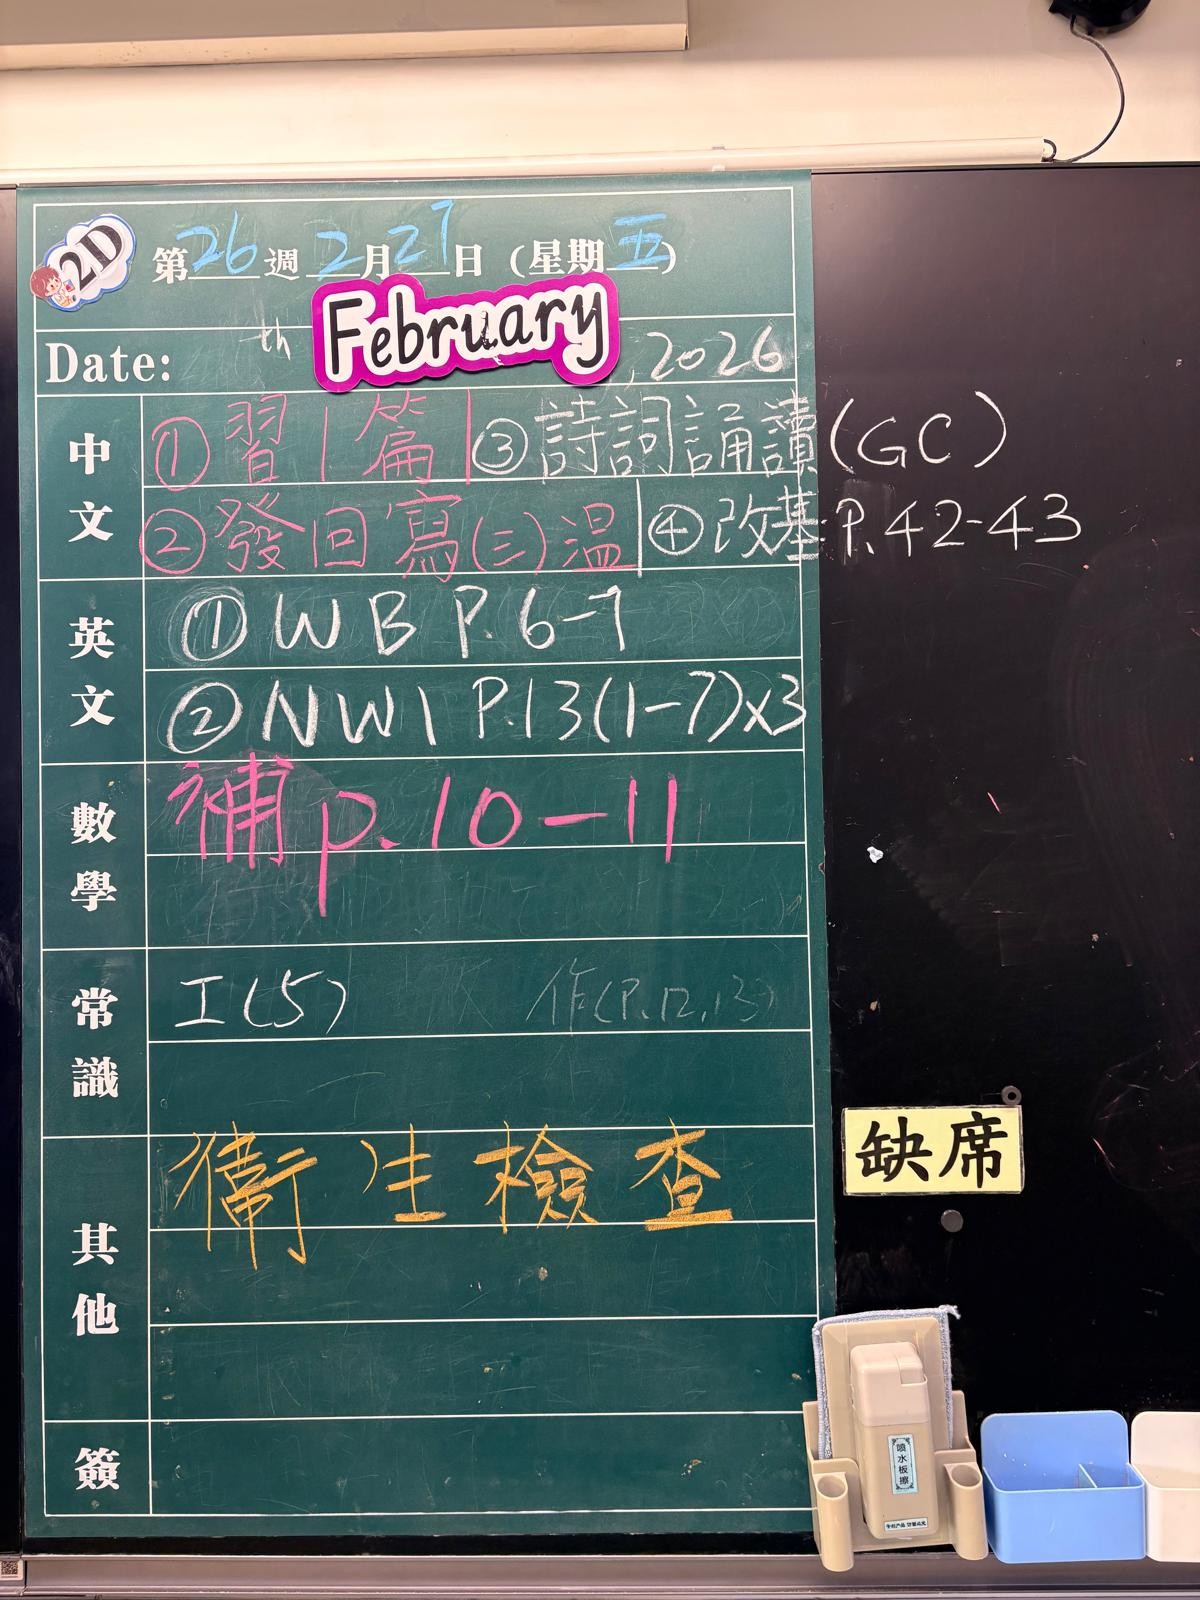 2D
第26週 2月27日 (星期五)
February
Date: th , 2026
中文
①習1篇 ③詩詞誦讀(GC)
②發回寫(三)溫 ④改基P.42-43
英文
①WB P.6-7
②NW1 P.13(1-7)x3
數學
補p.10-11
常識
I(5) 作(P.12,13)
其他
衛生檢查
簽
缺席
噴水板擦